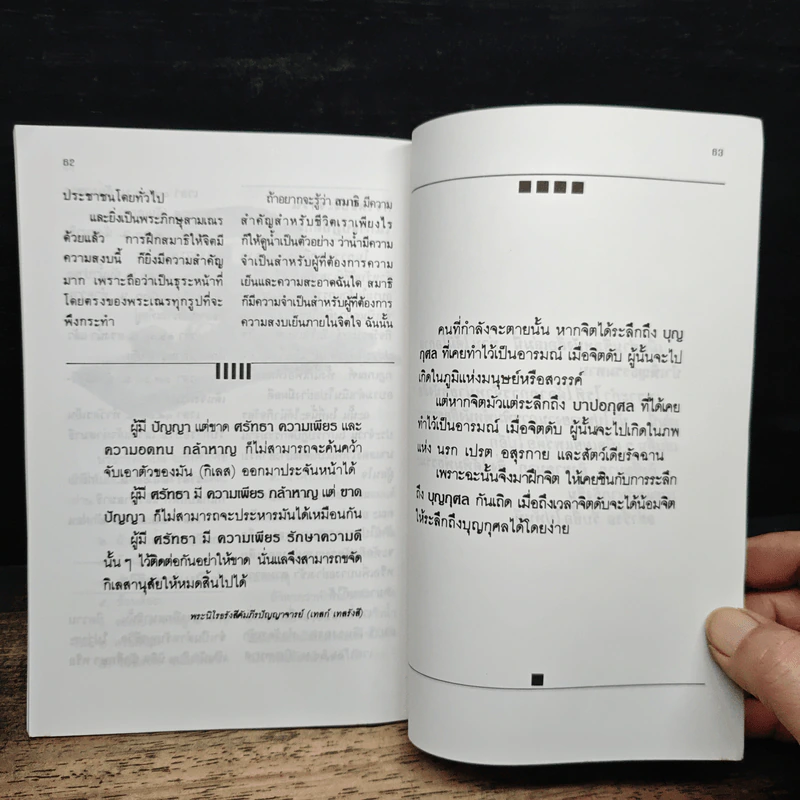 62
ประชาชนโดยทั่วไป
และยิ่งเป็นพระภิกษุสามเณร
ด้วยแล้ว การฝึกสมาธิให้จิตมี
ความสงบนี้ ก็ยิ่งมีความสำคัญ
มาก เพราะถือว่าเป็นธุระหน้าที่
โดยตรงของพระเณรทุกรูปที่จะ
พึงกระทำ
ถ้าอยากจะรู้ว่า สมาธิ มีความ
สำคัญสำหรับชีวิตเราเพียงไร
ก็ให้ดูน้ำเป็นตัวอย่าง ว่าน้ำมีความ
จำเป็นสำหรับผู้ที่ต้องการความ
เย็นและความสะอาดฉันใด สมาธิ
ก็มีความจำเป็นสำหรับผู้ที่ต้องการ
ความสงบเย็นภายในจิตใจ ฉันนั้น
ผู้มี ปัญญา แต่ขาด ศรัทธา ความเพียร และ
ความอดทน กล้าหาญ ก็ไม่สามารถจะค้นคว้า
จับเอาตัวของมัน (กิเลส) ออกมาประจันหน้าได้
ผู้มี ศรัทธา มี ความเพียร กล้าหาญ แต่ ขาด
ปัญญา ก็ไม่สามารถจะประหารมันได้เหมือนกัน
ผู้มี ศรัทธา มี ความเพียร รักษาความดี
นั้น ๆ ไว้ติดต่อกันอย่าให้ขาด นั่นแลจึงสามารถขจัด
กิเลสานุสัยให้หมดสิ้นไปได้
พระนิโรธรังสีคัมภีรปัญญาจารย์ (เทสก์ เทสรังสี)
63
คนที่กำลังจะตายนั้น หากจิตได้ระลึกถึง บุญ
กุศล ที่เคยทำไว้เป็นอารมณ์ เมื่อจิตดับ ผู้นั้นจะไป
เกิดในภูมิแห่งมนุษย์หรือสวรรค์
แต่หากจิตมัวแต่ระลึกถึง บาปอกุศล ที่ได้เคย
ทำไว้เป็นอารมณ์ เมื่อจิตดับ ผู้นั้นจะไปเกิดในภพ
แห่ง นรก เปรต อสุรกาย และสัตว์เดียรัจฉาน
เพราะฉะนั้นจึงมาฝึกจิต ให้เคยชินกับการระลึก
ถึง บุญกุศล กันเถิด เมื่อถึงเวลาจิตดับจะได้น้อมจิต
ให้ระลึกถึงบุญกุศลได้โดยง่าย